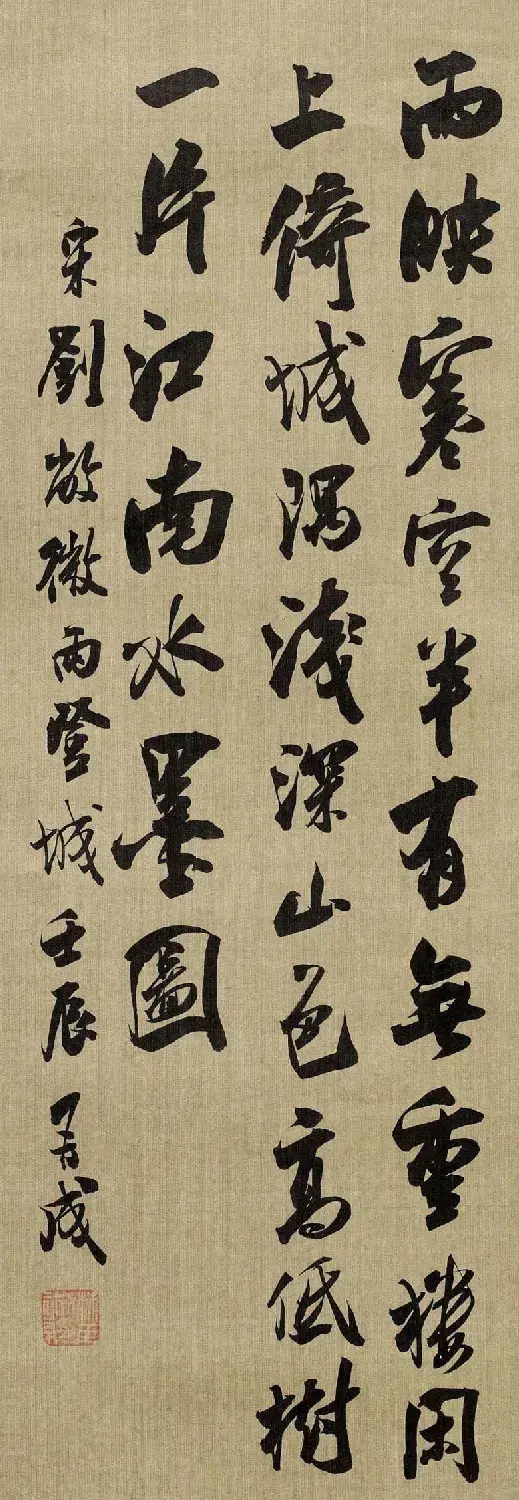 雨映寒空半有無重樓閑
上倚城隅淺深山色高低樹
一片江南水墨圖
宋劉敞微雨登城壬辰